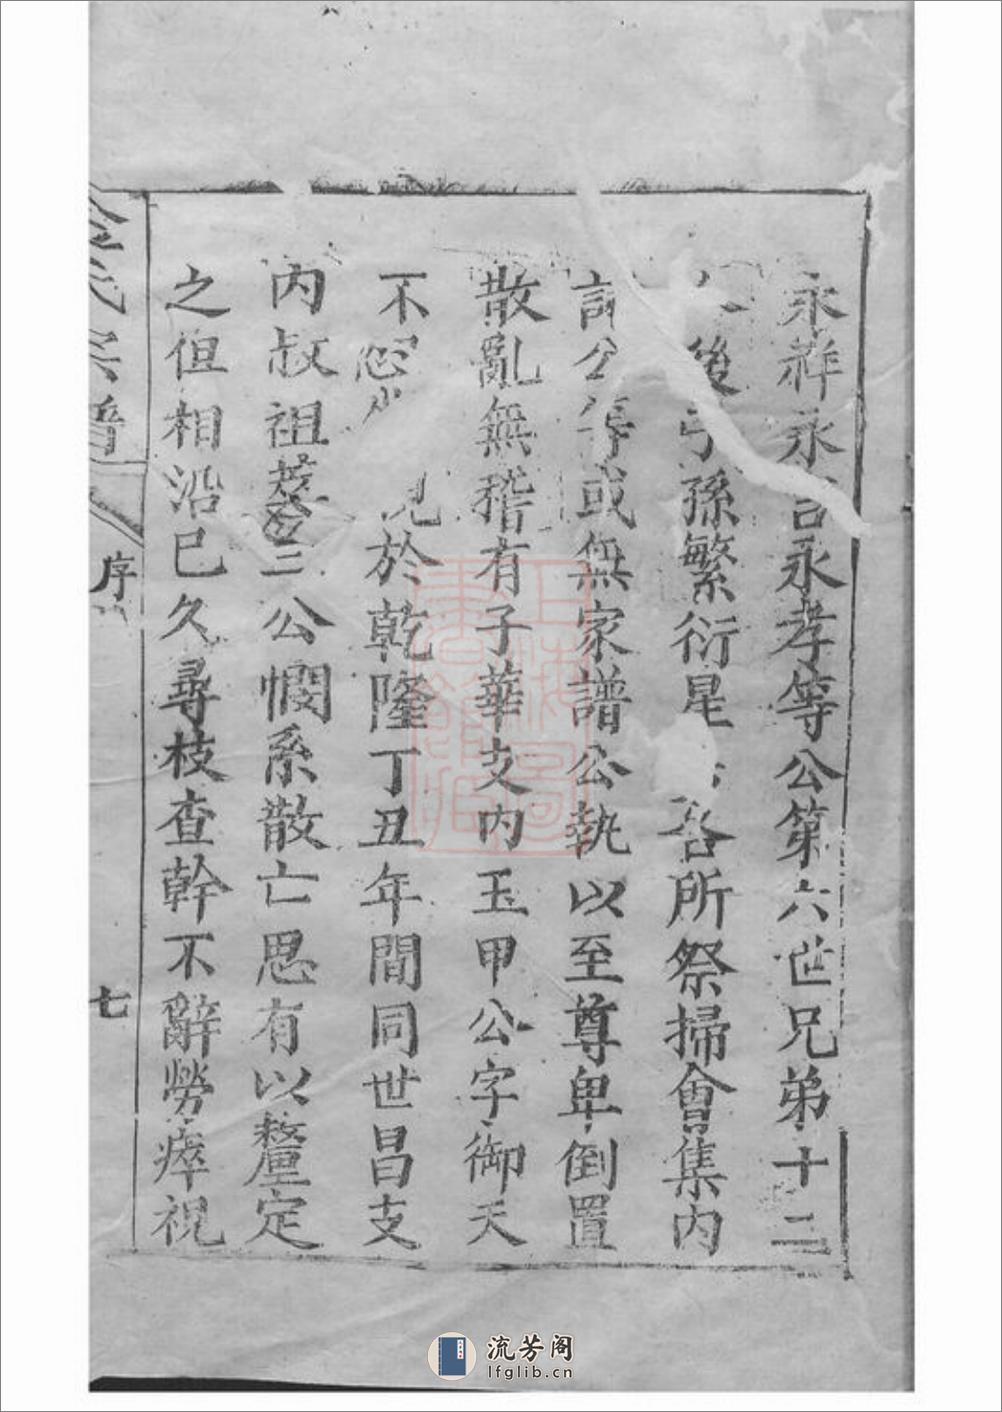 永祥永言永孝等公第六世兄弟十二
後孫繁衍星各所祭掃會集內
公等或無家譜公執以至尊卑倒置
散亂無稽有子華支内玉甲公字御天
不於乾隆丁丑年間同世昌支
内叔祖三公憫系散亡思有以釐定
之但相沿已久尋枝查幹不辭勞瘁視
金氏宗譜
序
七
流芳阁
lfglib.cn